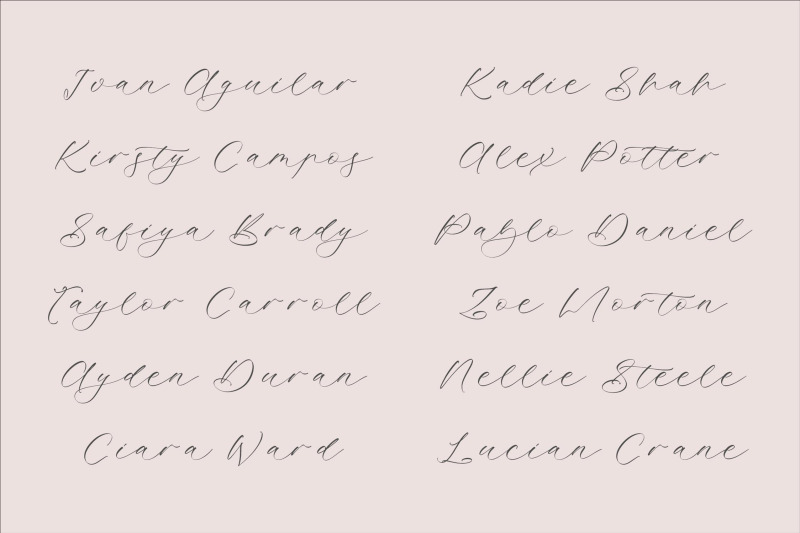 Aguilar
Kadie Shah
Kirsty Campos
Alex Potter
Safiya Brady
Pablo Daniel
Taylor Carroll
Zoe Morton
Ayden Duran
Nellie Steele
Ciara Ward
Lucian Crane